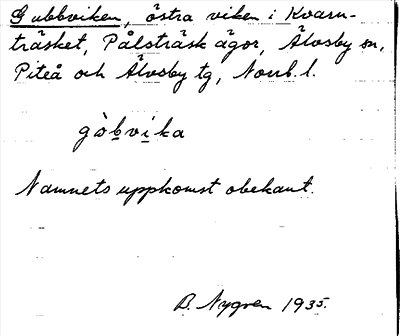 Gubbviken, östra viken i Kvarn-
träsket, Pålsträsk ägor, Älvsby sn,
Piteå och Älvsby tg, Norrb. l.
gòbvika
Namnets uppkomst obekant.
B. Nygren 1935.